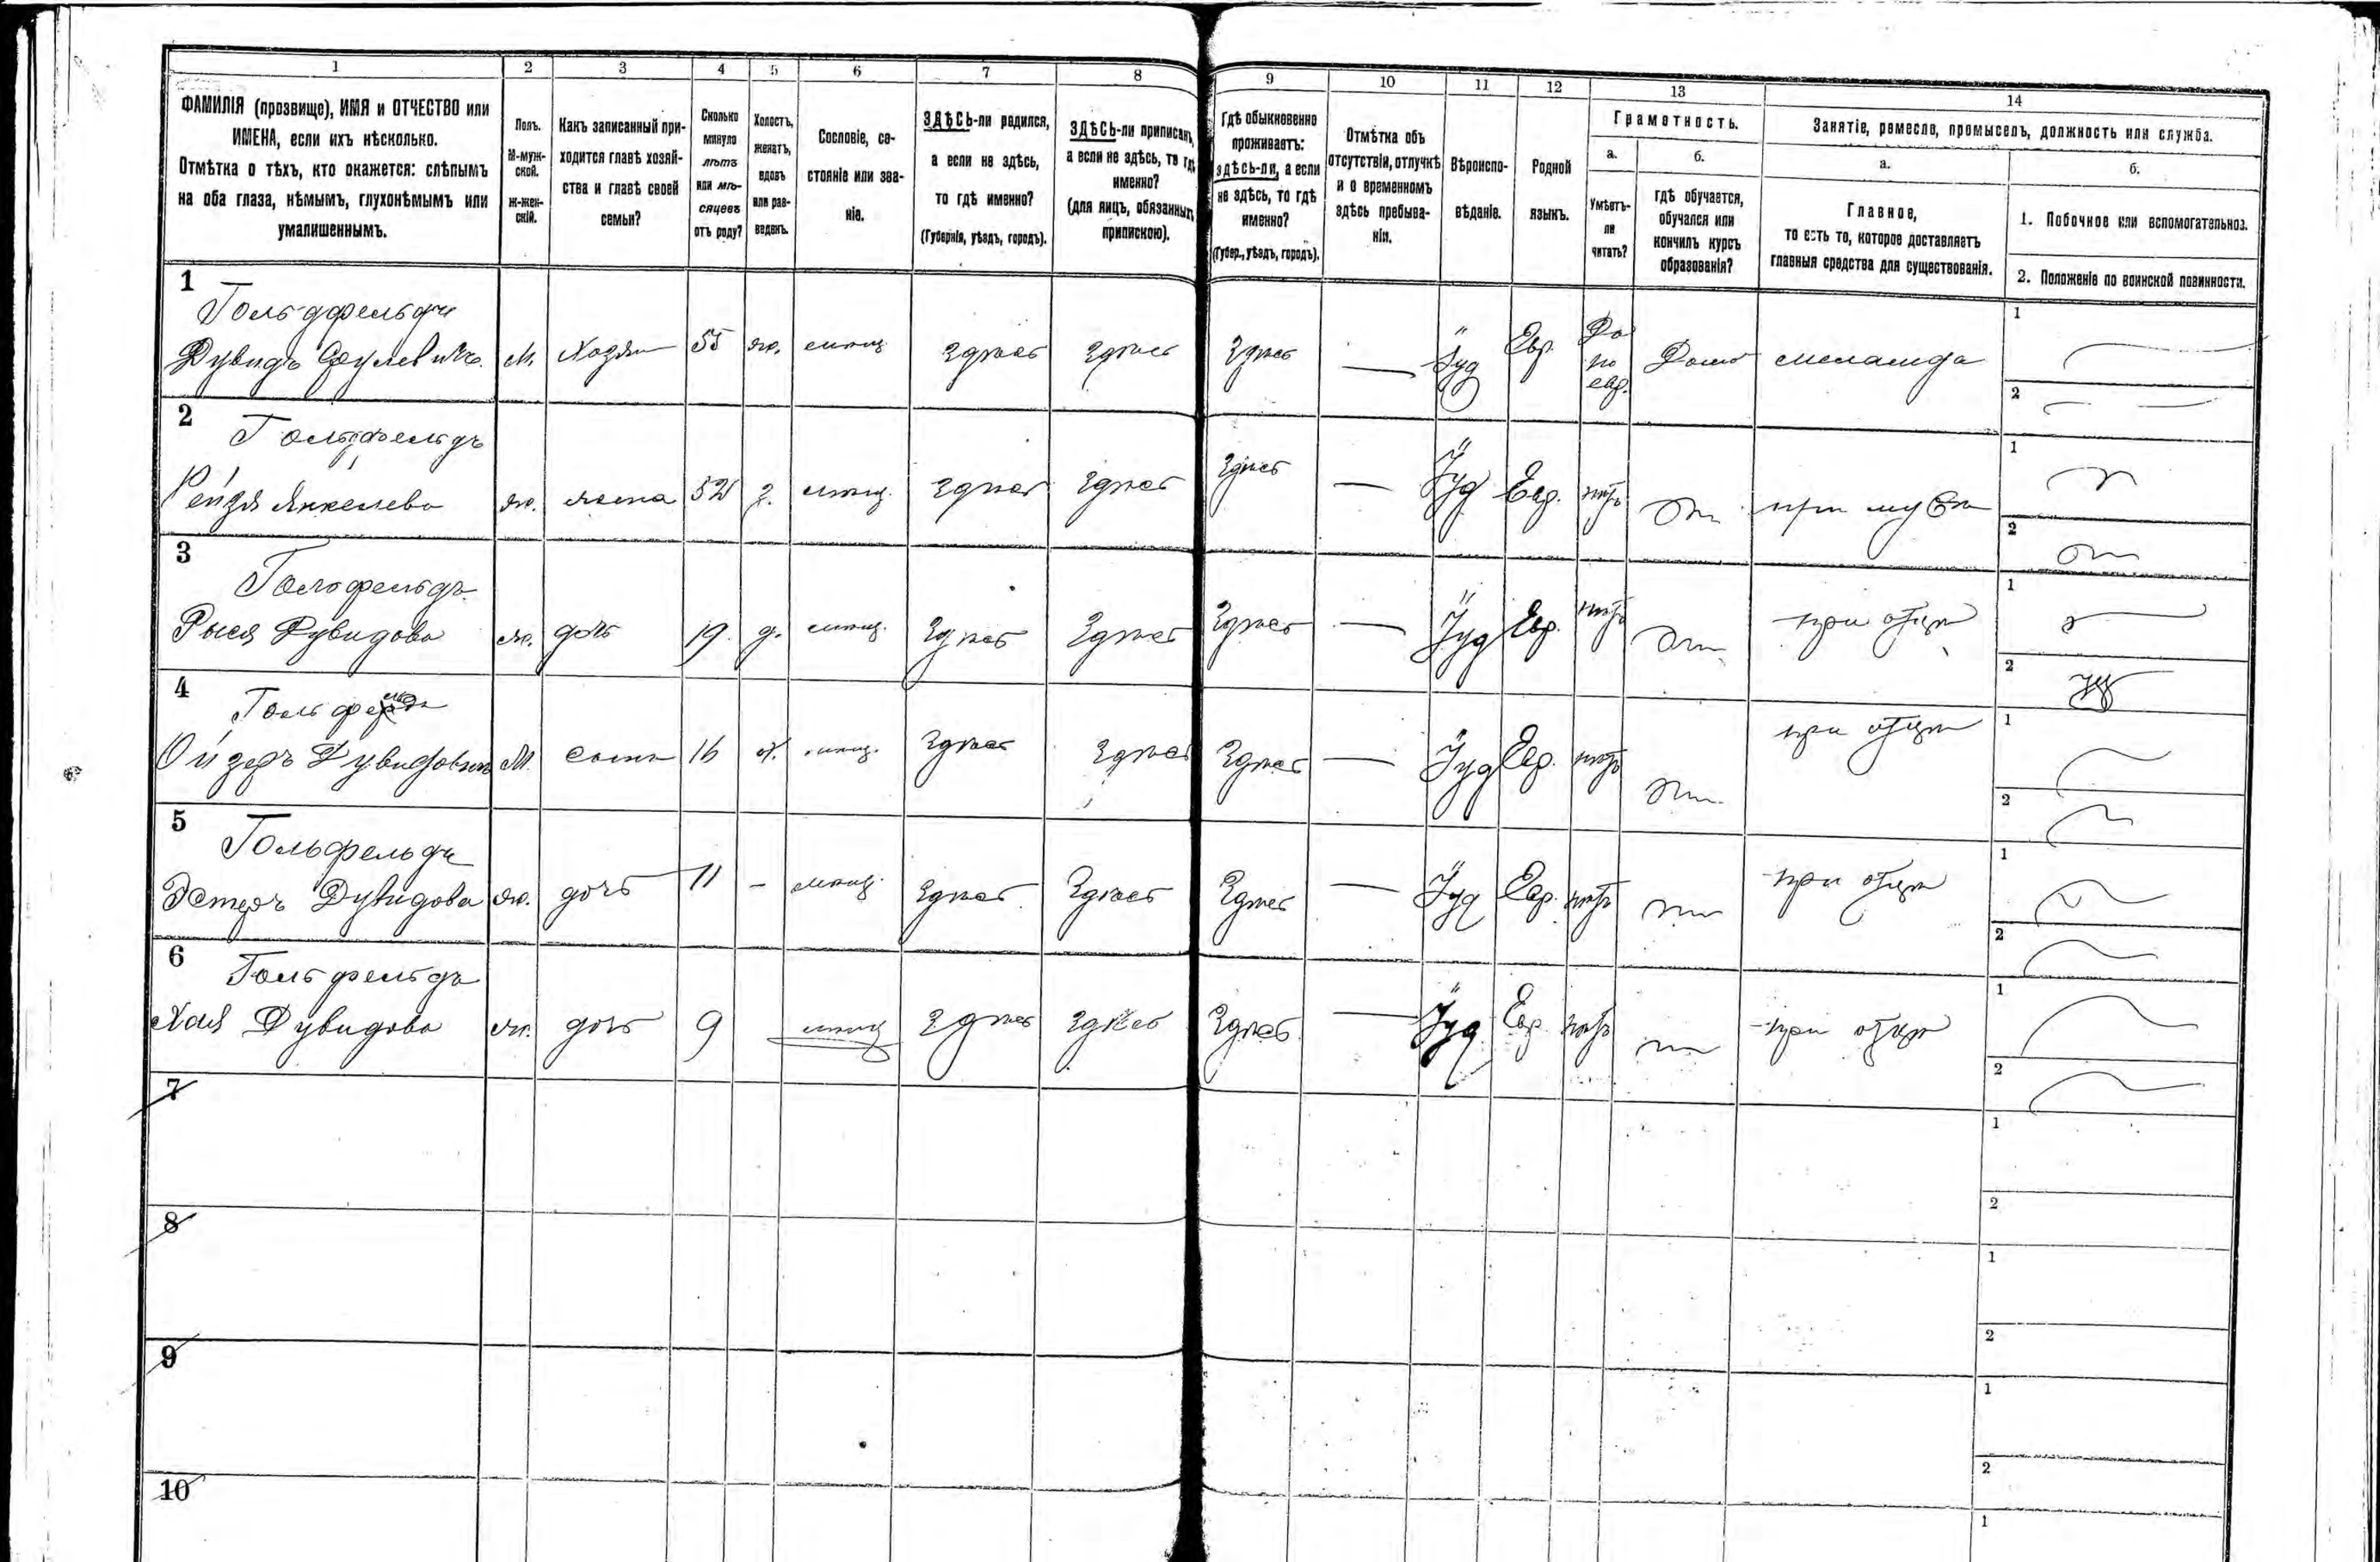 1 2 3 4 5 6 7 8 9 10 11 12 13 14
ФАМИЛІЯ (прозвище), ИМЯ и ОТЧЕСТВО или
ИМЕНА, если ихъ нѣсколько.
Отмѣтка о тѣхъ, кто окажется: слѣпымъ
на оба глаза, нѣмымъ, глухонѣмымъ или
умалишеннымъ.
Полъ.
М-муж-
ской.
Ж-жен-
скій.
Какъ записанный при-
ходится главѣ хозяй-
ства и главѣ своей
семьи?
Сколько
минуло
лѣтъ
или мѣ-
сяцевъ
отъ роду?
Холостъ,
женатъ,
вдовъ
или раз-
веденъ.
Сословіе, со-
стояніе или зва-
ніе.
ЗДѢСЬ-ли родился,
а если не здѣсь,
то гдѣ именно?
(Губернія, уѣздъ, городъ).
ЗДѢСЬ-ли приписанъ,
а если не здѣсь, то гдѣ
именно?
(для лицъ, обязанныхъ
припискою).
Гдѣ обыкновенно
проживаетъ:
здѣсь-ли, а если
не здѣсь, то гдѣ
именно?
(Губер., уѣздъ, городъ).
Отмѣтка объ
отсутствіи, отлучкѣ
и о временномъ
здѣсь пребыва-
ніи.
Вѣроиспо-
вѣданіе.
Родной
языкъ.
Грамотность.
а.
Умѣетъ-
ли
читать?
б.
гдѣ обучается,
обучался или
кончилъ курсъ
образованія?
Занятіе, ремесло, промыселъ, должность или служба.
а.
Главное,
то есть то, которое доставляетъ
главныя средства для существованія.
б.
1. Побочное или вспомогательное.
2. Положеніе по воинской повинности.
1
Гольдфельдъ 1
Дувидъ Срулевичъ. М. Хозяин 55 ж. мѣщ Здѣсь Здѣсь Здѣсь — Іуд Евр. Да по евр. Дома меламеда
2
2
Гольдфельдъ 1
Рейзя Янкелева ж. жена 52 з. мѣщ. Здѣсь Здѣсь Здѣсь — Іуд Евр. нѣтъ при мужѣ
2
3
Гольфельдъ 1
Рыся Дувидова ж. дочь 19 д. мѣщ. Здѣсь Здѣсь Здѣсь — Іуд Евр. нѣтъ при отцѣ
2
4
Гольфельдъ 1
Ойзеръ Дувидовичъ М. сынъ 16 х. мѣщ. Здѣсь Здѣсь Здѣсь — Іуд Евр. нѣтъ при отцѣ
2
5
Гольфельдъ 1
Эстеръ Дувидова ж. дочь 11 – мѣщ. Здѣсь Здѣсь Здѣсь — Іуд Евр. нѣтъ при отцѣ
2
6
Гольфельдъ 1
Хая Дувидова ж. дочь 9 мѣщ Здѣсь Здѣсь Здѣсь — Іуд Евр. нѣтъ при отцѣ
2
7 1
2
8 1
2
9 1
2
10 1